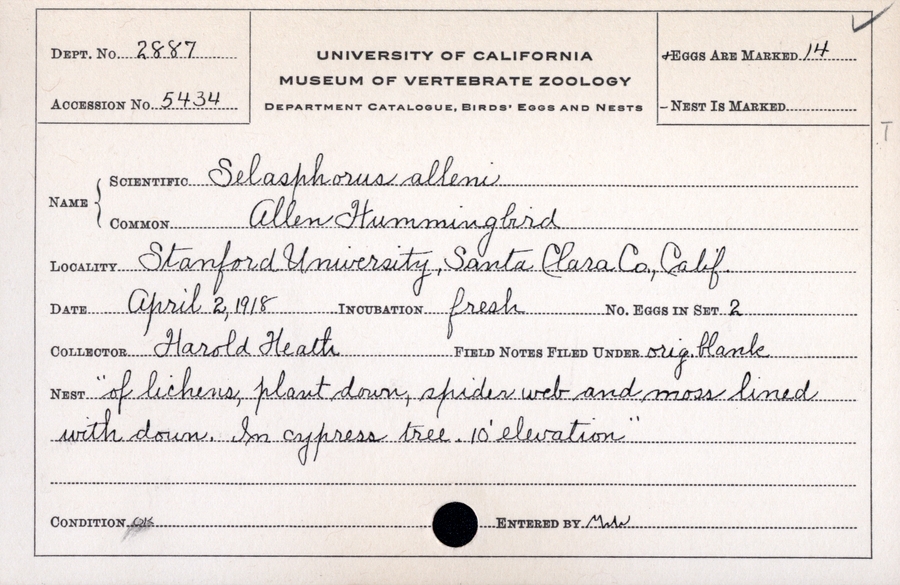 Dept. No. 2887
Accession No. 5434
UNIVERSITY OF CALIFORNIA
MUSEUM OF VERTEBRATE ZOOLOGY
Department Catalogue, Birds' Eggs and Nests
+Eggs Are Marked 14
- Nest Is Marked
T
Name { Scientific Selasphorus alleni
Common Allen Hummingbird
Locality Stanford University, Santa Clara Co., Calif.
Date April 2, 1918 Incubation fresh No. Eggs in Set 2
Collector Harold Heath Field Notes Filed Under orig. blank
Nest "of lichens, plant down, spider web and moss lined
with down. In cypress tree. 10' elevation"
Condition OK Entered by